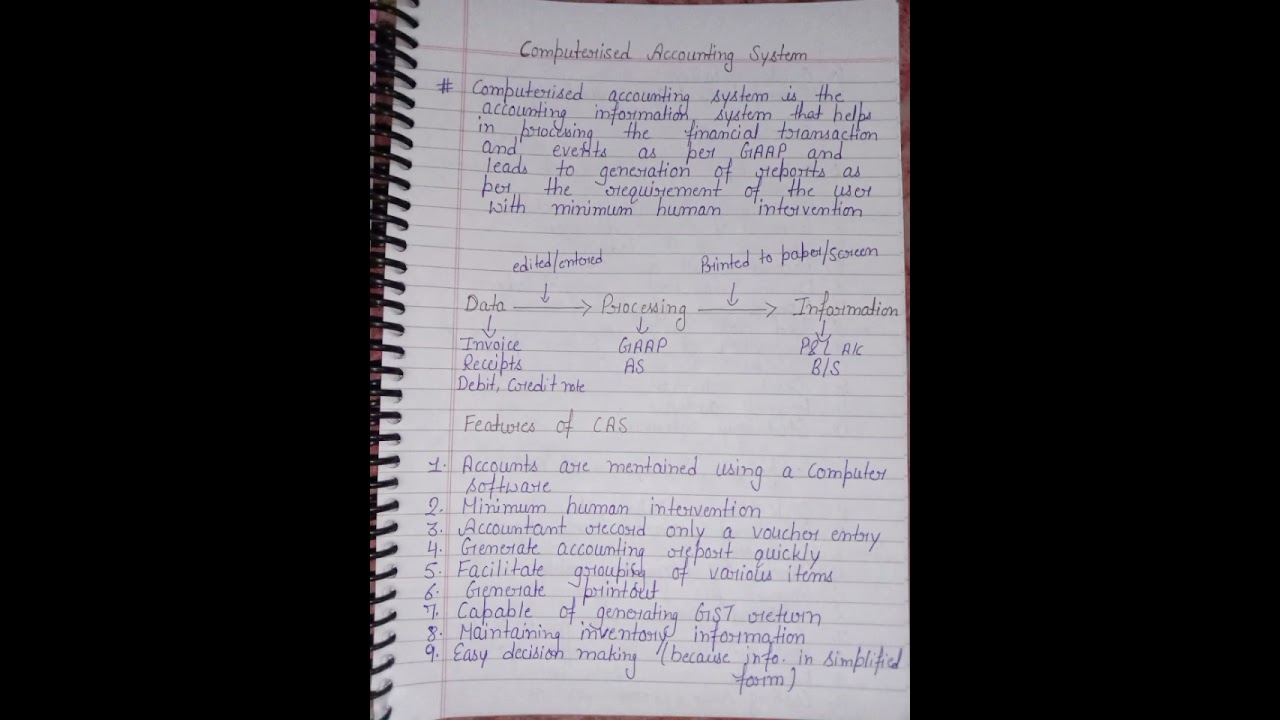 Computerised Accounting System
# Computerised accounting system is the
accounting information system that helps
in processing the financial transaction
and events as per GAAP and
leads to generation of reports as
per the requirement of the user
with minimum human intervention
edited/entered Printed to paper/screen
Data → Processing → Information
↓ ↓ ↓
Invoice GAAP P&L A/c
Receipts AS B/S
Debit, Credit note
Features of CAS
1. Accounts are mentained using a computer
software
2. Minimum human intervention
3. Accountant record only a voucher entry
4. Generate accounting report quickly
5. Facilitate grouping of various items
6. Generate printout
7. Capable of generating GST return
8. Maintaining inventory information
9. Easy decision making (because info. in simplified
form)